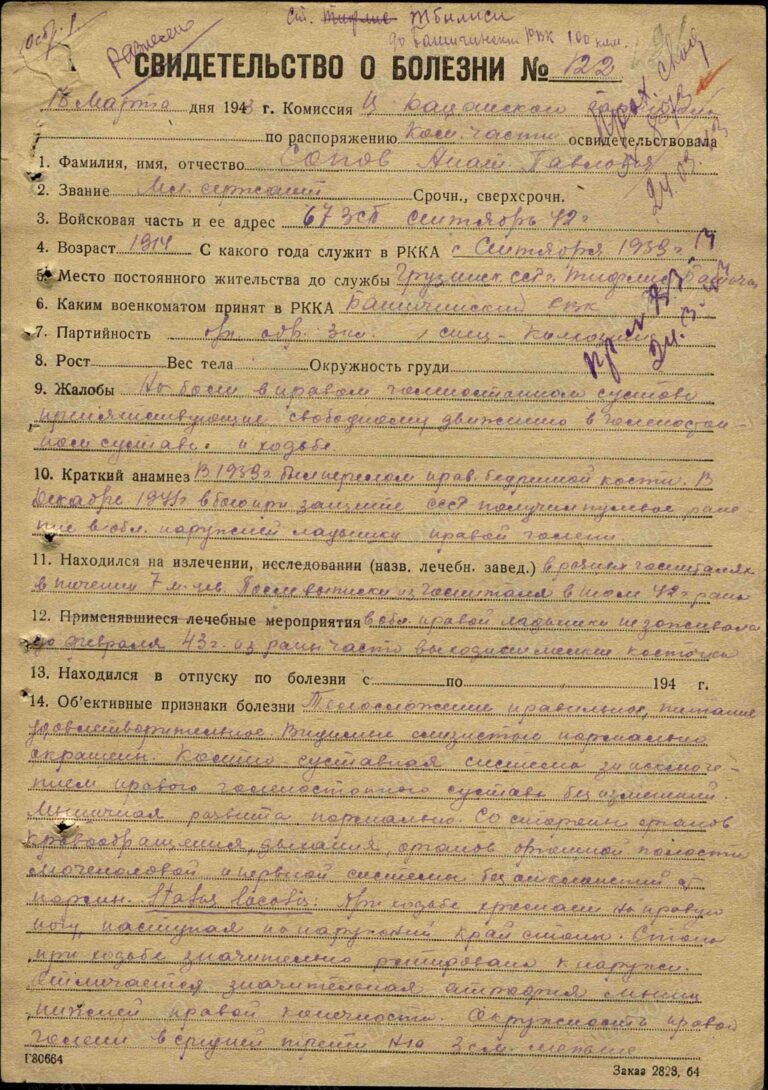 Ст. Тифлис Тбилиси
до Башичинский РВК 100 клм.
Разнесено
СВИДЕТЕЛЬСТВО О БОЛЕЗНИ № 122
18 Марта дня 1943 г. Комиссия
по распоряжению Ком. части освидетельствовала
1. Фамилия, имя, отчество Сопов Павлович
2. Звание Мл. сержант Срочн., сверхсрочн.
3. Войсковая часть и ее адрес 67 ЗСП сентябрь 42 г
4. Возраст 1914 С какого года служит в РККА с Сентября 1939 г.
5. Место постоянного жительства до службы Грузинск. ССР г. Тифлис
6. Каким военкоматом принят в РККА Башичинский РВК
7. Партийность
8. Рост Вес тела Окружность груди
9. Жалобы На боли в правом голеностопном суставе
препятствующие свободному движению в голеностоп-
ном суставе и ходьбе.
10. Краткий анамнез В 1939 г. был перелом прав. бедренной кости. В
Декабре 1941 г в бою при защите СССР получил пулевое ране-
ние в обл. наружней лодыжки правой голени
11. Находился на излечении, исследовании (назв. лечебн. завед.) в разных госпиталях
в течении 7 м-цев. После выписки из госпиталя в июле 42 г. рана
12. Применявшиеся лечебные мероприятия в обл. правой лодыжки не заживала
до февраля 43 г. из раны часто выходили мелкие косточки
13. Находился в отпуску по болезни с по 194 г.
14. Об'ективные признаки болезни Телосложение правильное, питание
удовлетворительное. Видимые слизистые нормально
окрашены. Костно суставная система за исключе-
нием правого голеностопного сустава без изменений.
Мышечная развита нормально. Со стороны органов
кровообращения, дыхания, органов брюшной полости
мочеполовой и нервной системы без отклонений от
нормы. Status localis: При ходьбе хромает на правую
ногу, наступая на наружный край стопы. Стопа
при ходьбе значительно ротирована к наружи.
Отмечается значительная атрофия мышц
нижней правой конечности. Окружность правой
голени в средней трети на 3 см. меньше
Г80664
Заказ 2828, 64